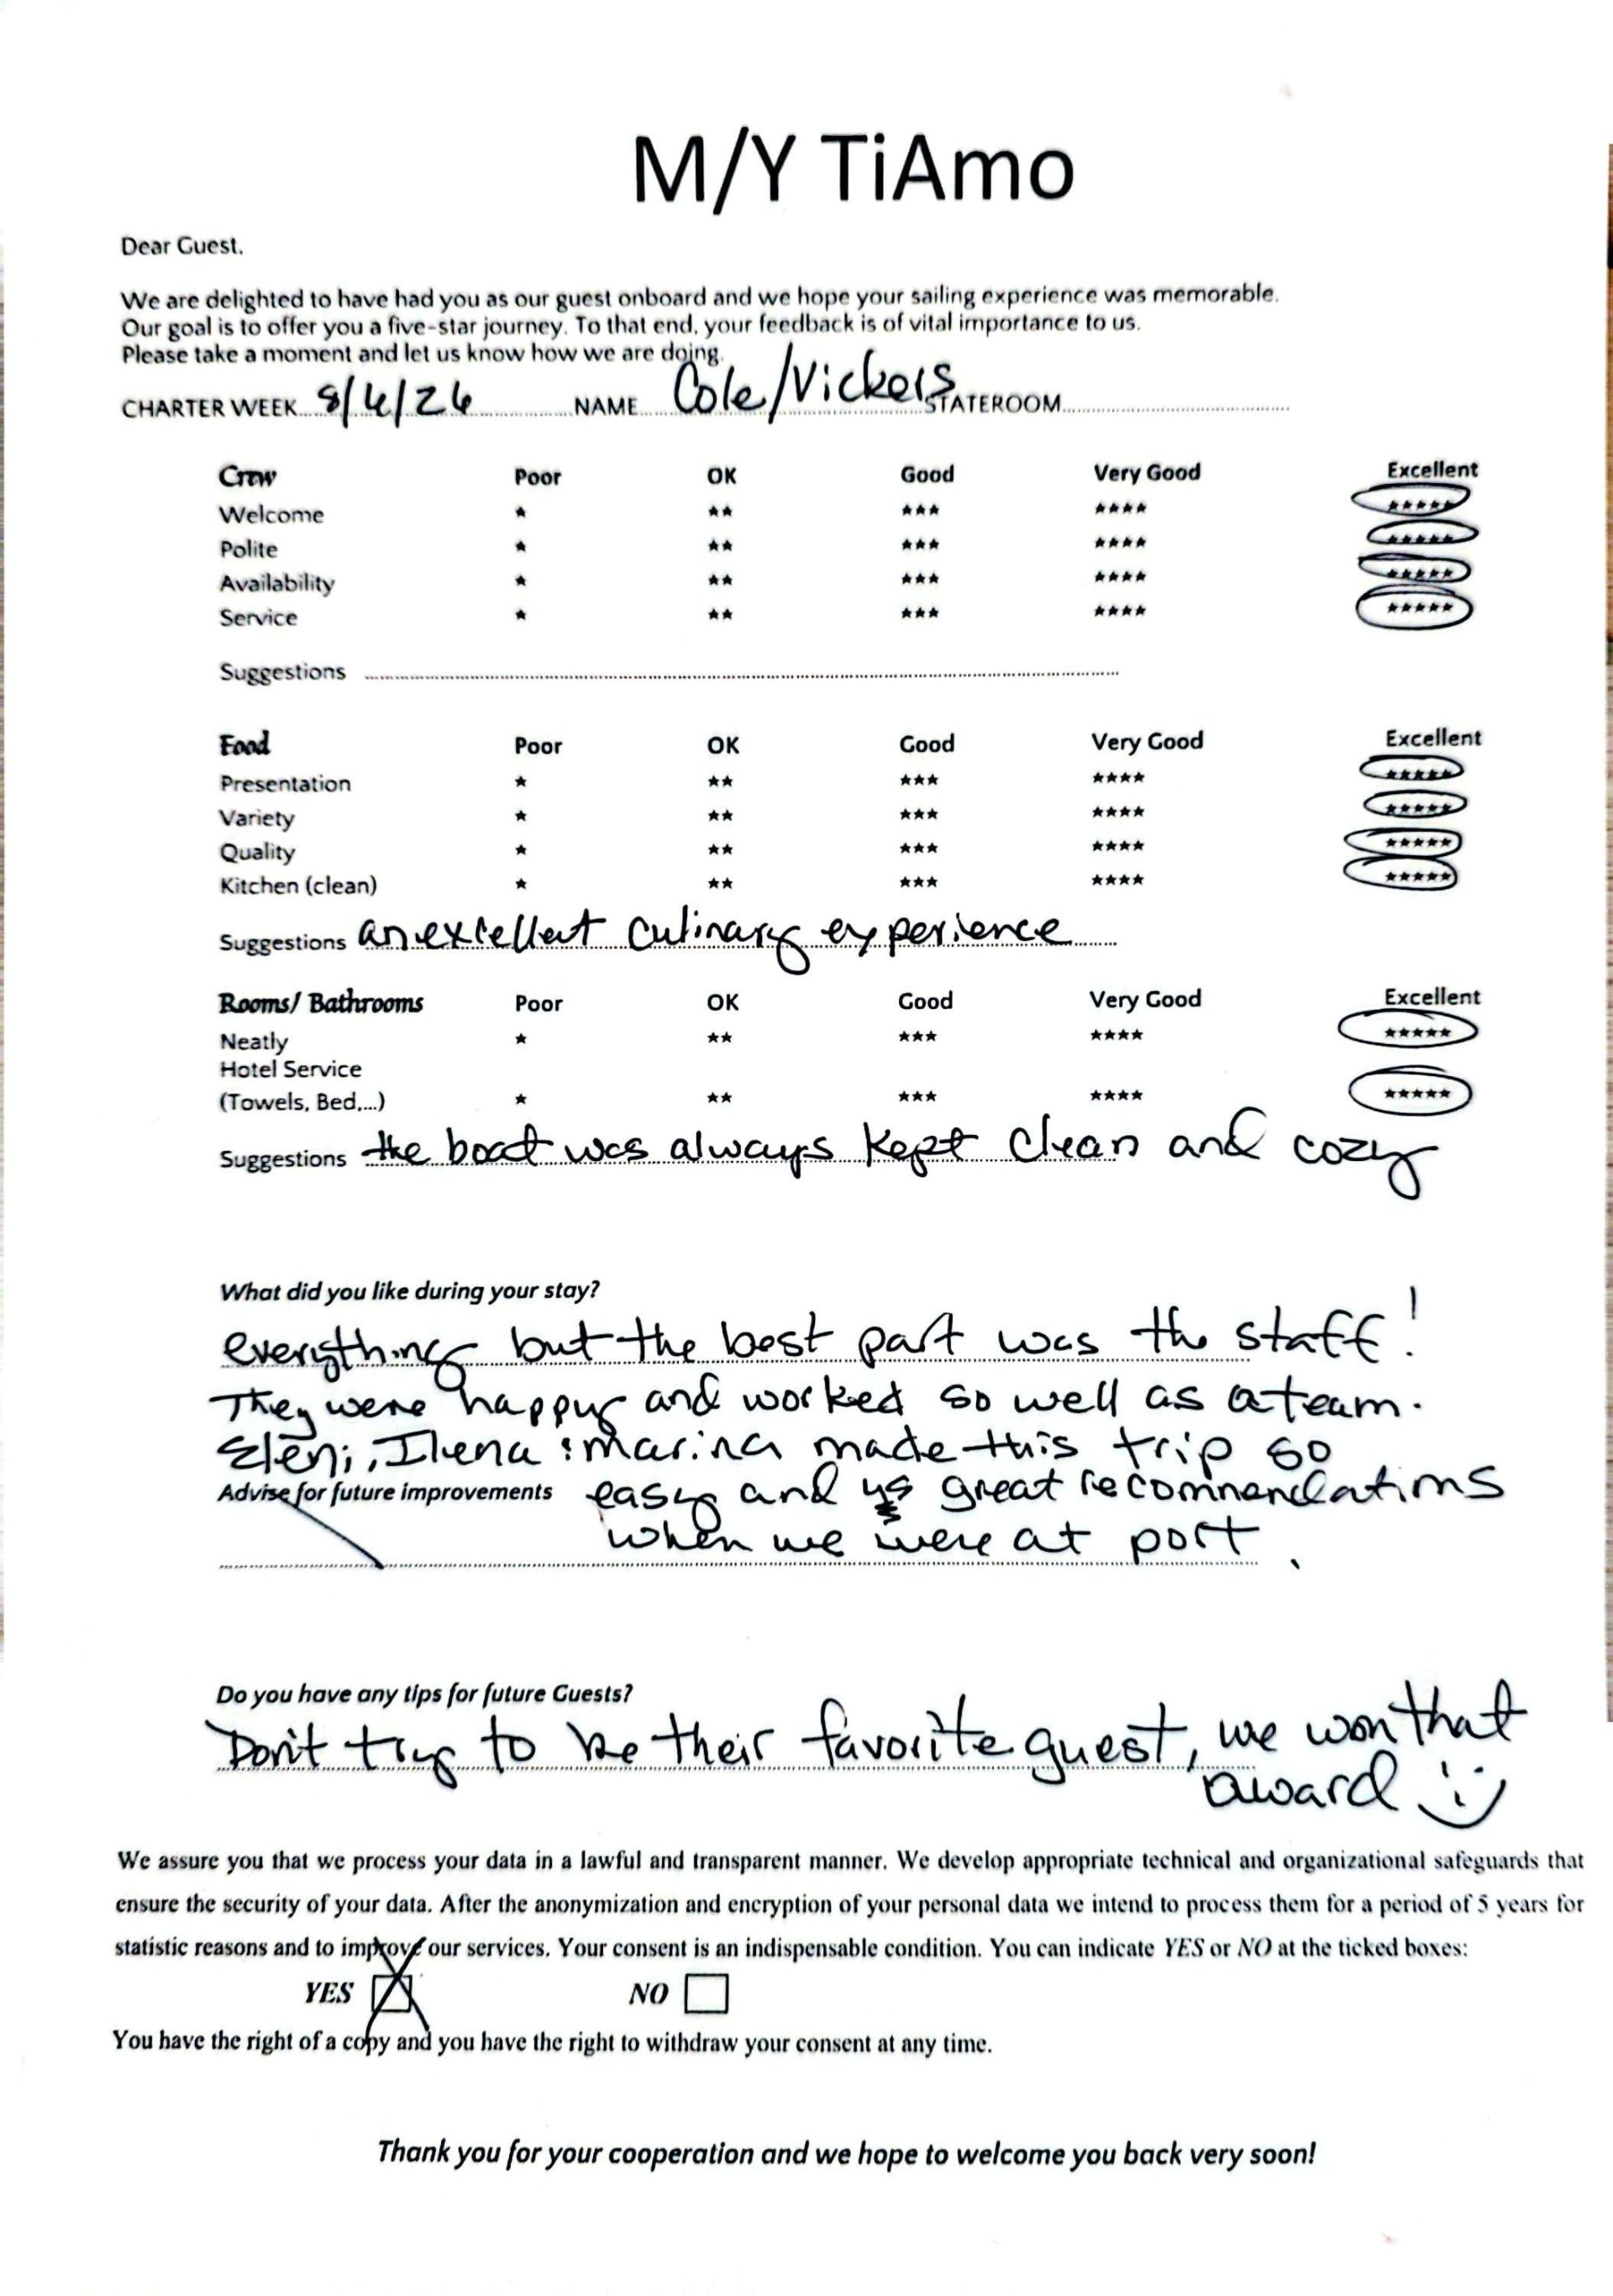 M/Y TiAmo
Dear Guest,
We are delighted to have had you as our guest onboard and we hope your sailing experience was memorable.
Our goal is to offer you a five-star journey. To that end, your feedback is of vital importance to us.
Please take a moment and let us know how we are doing.
CHARTER WEEK 8/4/26 NAME Cole/Vickers STATEROOM
Crew Poor OK Good Very Good Excellent
Welcome ★ ★★ ★★★ ★★★★ ★★★★★
Polite ★ ★★ ★★★ ★★★★ ★★★★★
Availability ★ ★★ ★★★ ★★★★ ★★★★★
Service ★ ★★ ★★★ ★★★★ ★★★★★
Suggestions
Food Poor OK Good Very Good Excellent
Presentation ★ ★★ ★★★ ★★★★ ★★★★★
Variety ★ ★★ ★★★ ★★★★ ★★★★★
Quality ★ ★★ ★★★ ★★★★ ★★★★★
Kitchen (clean) ★ ★★ ★★★ ★★★★ ★★★★★
Suggestions an excellent culinary experience
Rooms/ Bathrooms Poor OK Good Very Good Excellent
Neatly ★ ★★ ★★★ ★★★★ ★★★★★
Hotel Service
(Towels, Bed,...) ★ ★★ ★★★ ★★★★ ★★★★★
Suggestions the boat was always kept clean and cozy
What did you like during your stay?
everything but the best part was the staff!
They were happy and worked so well as a team.
Eleni, Ilena & marina made this trip so
Advise for future improvements easy and great recommendations
when we were at port.
Do you have any tips for future Guests?
Don't try to be their favorite guest, we won that
award :)
We assure you that we process your data in a lawful and transparent manner. We develop appropriate technical and organizational safeguards that
ensure the security of your data. After the anonymization and encryption of your personal data we intend to process them for a period of 5 years for
statistic reasons and to improve our services. Your consent is an indispensable condition. You can indicate YES or NO at the ticked boxes:
YES NO
You have the right of a copy and you have the right to withdraw your consent at any time.
Thank you for your cooperation and we hope to welcome you back very soon!